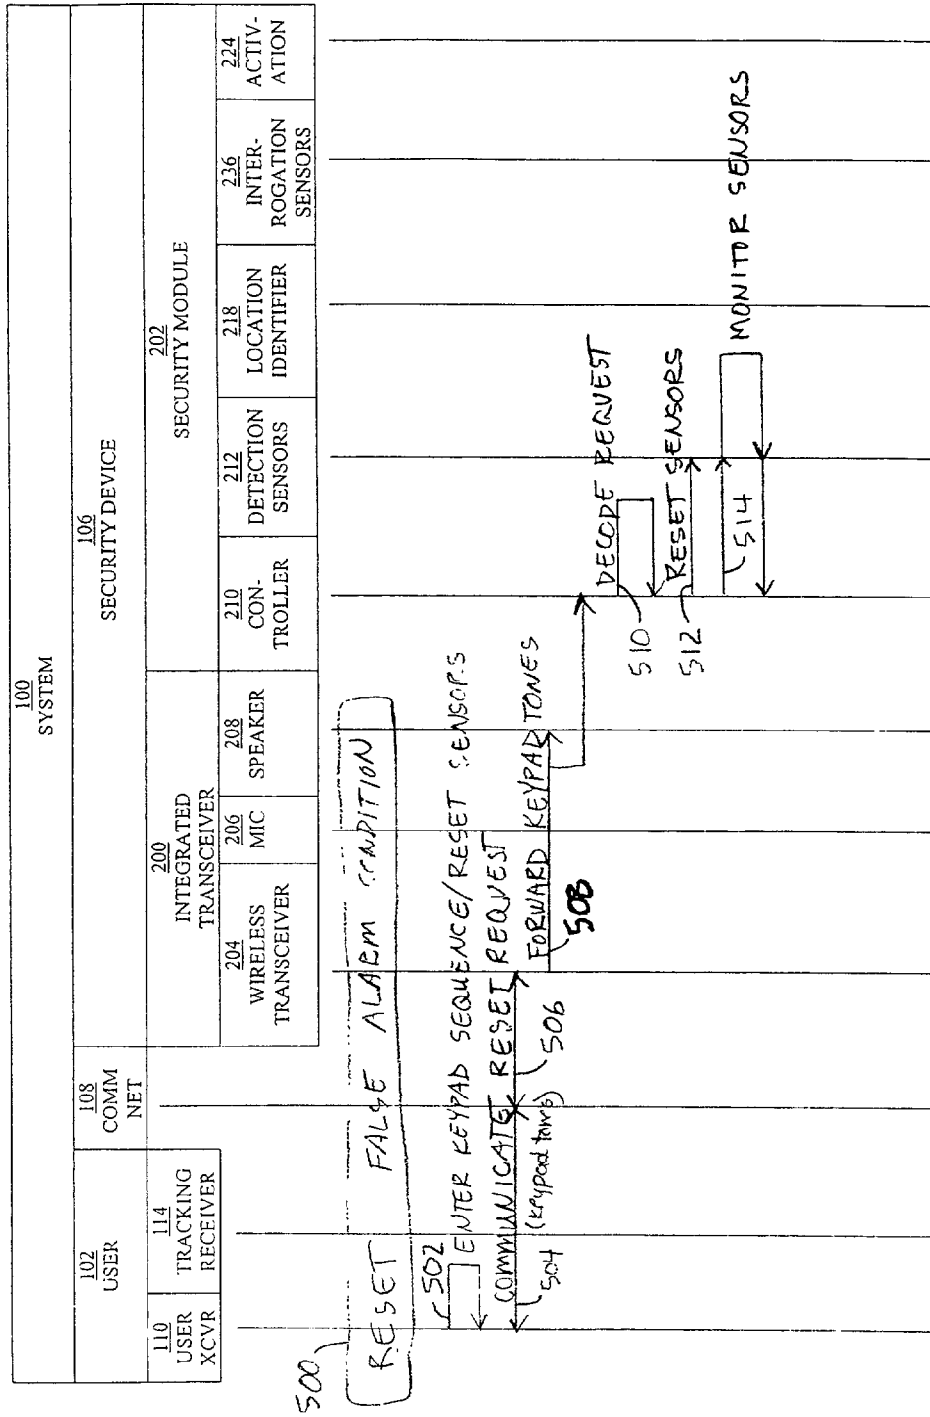 100
SYSTEM
102
USER
108
COMM
NET
106
SECURITY DEVICE
200
INTEGRATED
TRANSCEIVER
202
SECURITY MODULE
110
USER
XCVR
114
TRACKING
RECEIVER
204
WIRELESS
TRANSCEIVER
206
MIC
208
SPEAKER
210
CON-
TROLLER
212
DETECTION
SENSORS
218
LOCATION
IDENTIFIER
236
INTER-
ROGATION
SENSORS
224
ACTIV-
ATION
500
RESET FALSE ALARM CONDITION
502
ENTER KEYPAD SEQUENCE/RESET SENSORS
COMMUNICATE RESET REQUEST
504
(keypad tones)
506
FORWARD KEYPAD TONES
508
DECODE REQUEST
510
RESET SENSORS
512
514
MONITOR SENSORS